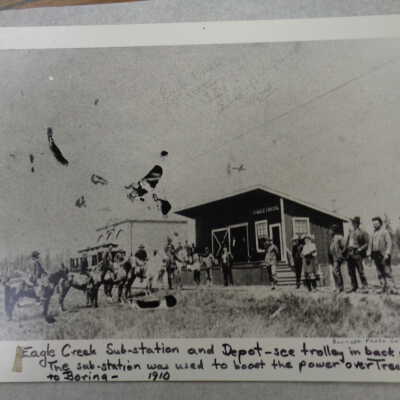 EAGLE CREEK
Eagle Creek Sub-station and Depot - see trolley in back
The sub-station was used to boost the power over Tree
to Boring - 1910